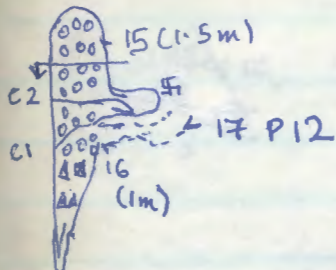 15 (1.5m)
C2
17 P12
C1
16
(1m)